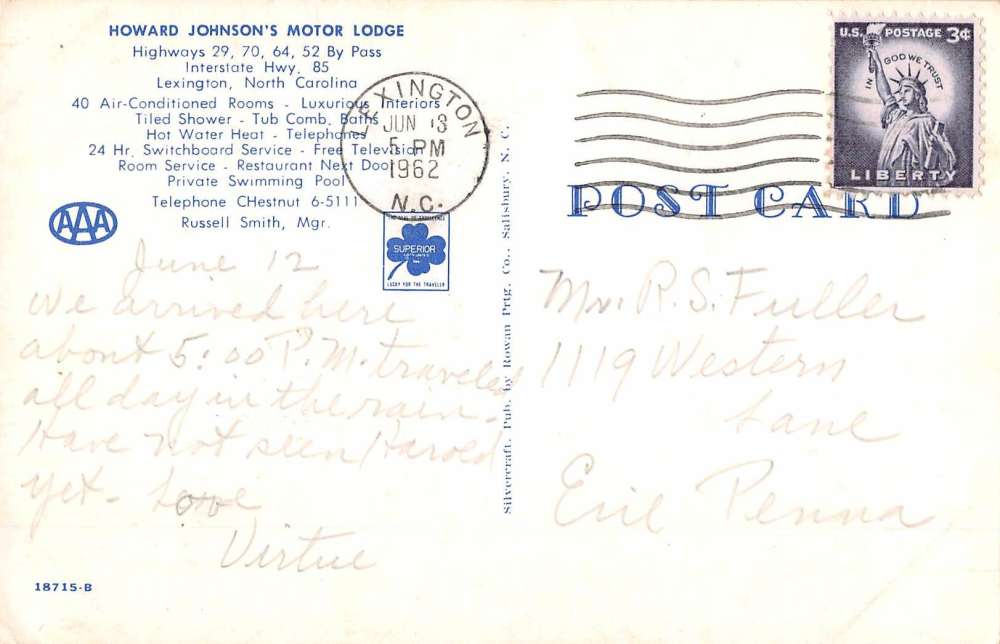 HOWARD JOHNSON'S MOTOR LODGE
Highways 29, 70, 64, 52 By Pass
Interstate Hwy. 85
Lexington, North Carolina
40 Air-Conditioned Rooms - Luxurious Interiors
Tiled Shower - Tub Comb. Baths
Hot Water Heat - Telephones
24 Hr. Switchboard Service - Free Television
Room Service - Restaurant Next Door
Private Swimming Pool
Telephone CHestnut 6-5111
Russell Smith, Mgr.
AAA
SUPERIOR
LUCKY FOR THE TRAVELER
June 12
We arrived here
about 5:00 P.M. traveled
all day in the rain.
Have not seen Harold
yet - Love
Virtue
18715-B
Silvercraft. Pub. by Rowan Prtg. Co., Salisbury, N. C.
LEXINGTON
JUN 13
5 PM
1962
N.C.
U.S. POSTAGE 3¢
IN GOD WE TRUST
LIBERTY
POST CARD
Mr. R. S. Fuller
1119 Western
Lane
Erie Penna